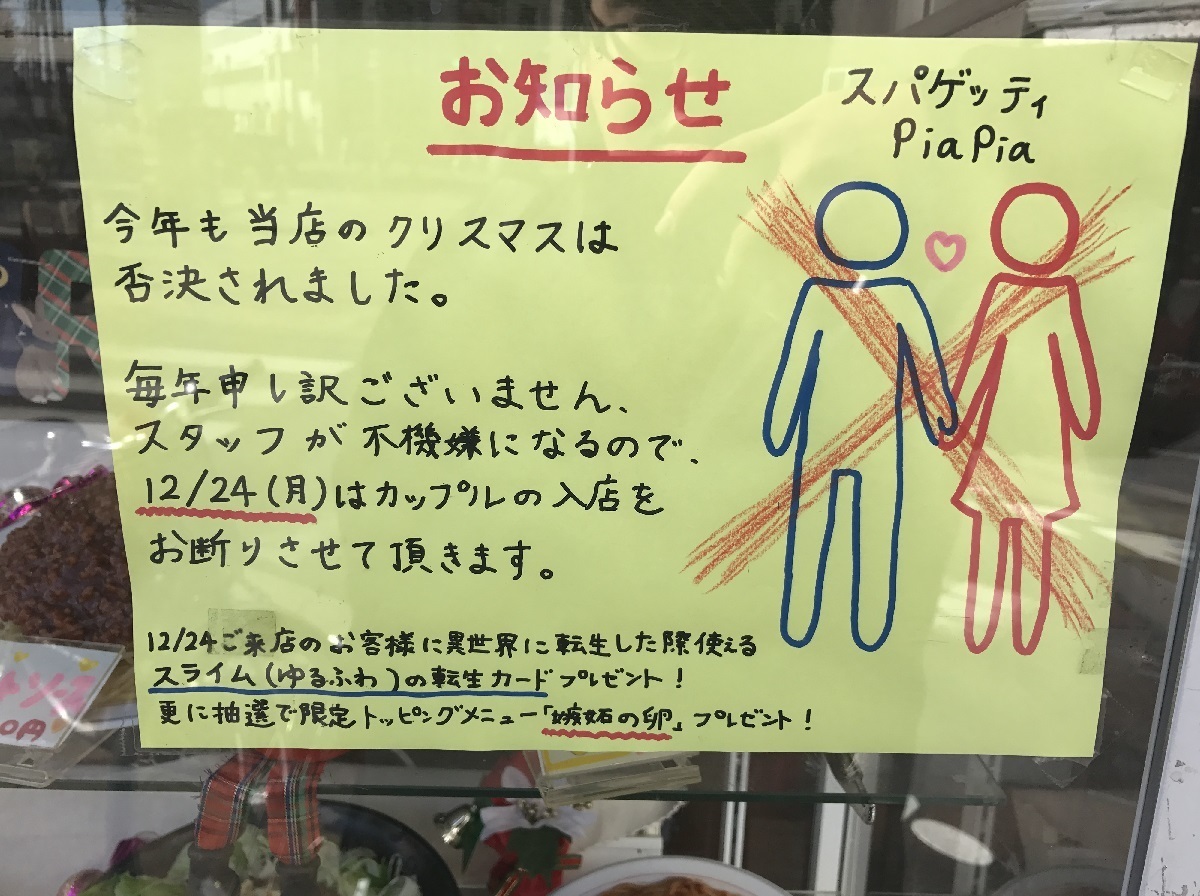 お知らせ
スパゲッティ
PiaPia
今年も当店のクリスマスは
否決されました。
毎年申し訳ございません、
スタッフが不機嫌になるので、
12/24(月)はカップルの入店を
お断りさせて頂きます。
12/24ご来店のお客様に異世界に転生した際使える
スライム(ゆるふわ)の転生カードプレゼント!
更に抽選で限定トッピングメニュー「嫉妬の卵」プレゼント!
0円